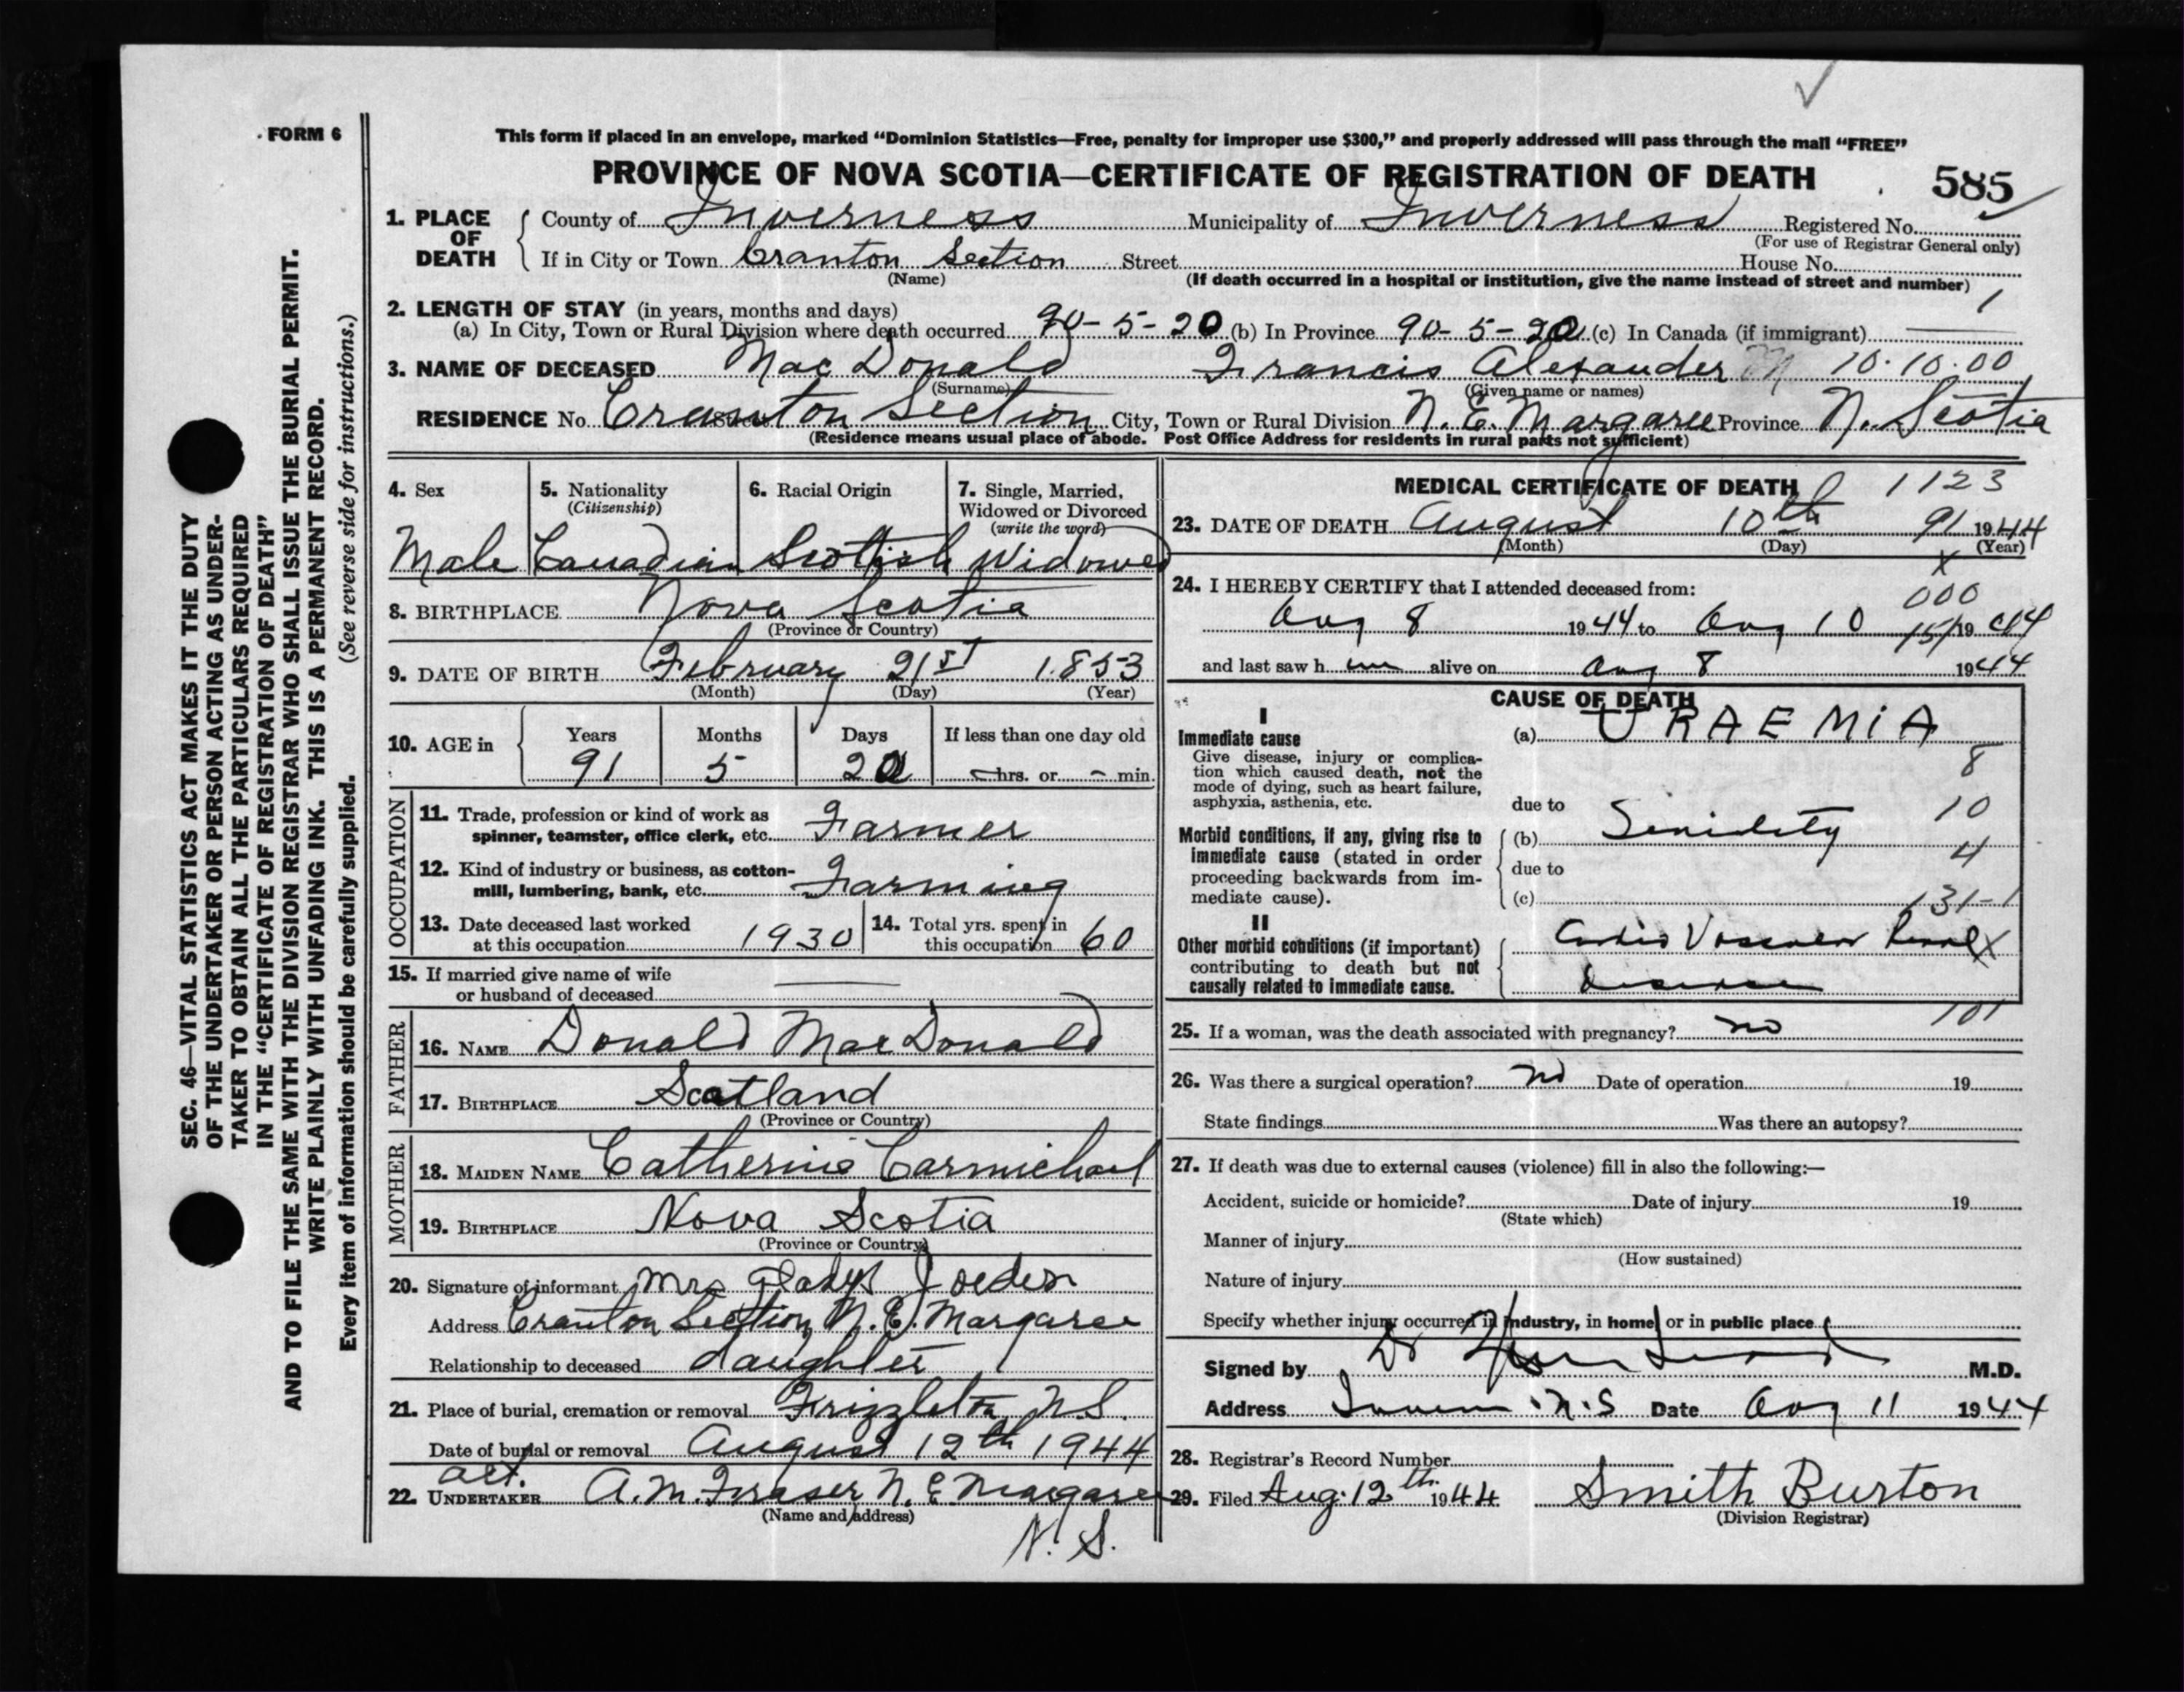 FORM 6
This form if placed in an envelope, marked “Dominion Statistics—Free, penalty for improper use $300,” and properly addressed will pass through the mail “FREE”
PROVINCE OF NOVA SCOTIA—CERTIFICATE OF REGISTRATION OF DEATH
585
1. PLACE OF DEATH
County of Inverness Municipality of Inverness Registered No.
(For use of Registrar General only)
If in City or Town Cranton Section Street House No.
(Name) (If death occurred in a hospital or institution, give the name instead of street and number)
2. LENGTH OF STAY (in years, months and days) 1
(a) In City, Town or Rural Division where death occurred 90-5-20 (b) In Province 90-5-20 (c) In Canada (if immigrant)
3. NAME OF DECEASED MacDonald Francis Alexander M 10.10.00
(Surname) (Given name or names)
RESIDENCE No. Cranton Section City, Town or Rural Division N. E. Margaree Province N. Scotia
Street
(Residence means usual place of abode. Post Office Address for residents in rural parts not sufficient)
4. Sex
Male
5. Nationality
(Citizenship)
Canadian
6. Racial Origin
Scottish
7. Single, Married,
Widowed or Divorced
(write the word)
Widowed
8. BIRTHPLACE Nova Scotia
(Province or Country)
9. DATE OF BIRTH February 21st 1853
(Month) (Day) (Year)
10. AGE in
Years Months Days If less than one day old
91 5 20 – hrs. or – min.
OCCUPATION
11. Trade, profession or kind of work as
spinner, teamster, office clerk, etc. Farmer
12. Kind of industry or business, as cotton-
mill, lumbering, bank, etc. Farming
13. Date deceased last worked
at this occupation 1930
14. Total yrs. spent in
this occupation 60
15. If married give name of wife
or husband of deceased ——
FATHER
16. NAME Donald MacDonald
17. BIRTHPLACE Scotland
(Province or Country)
MOTHER
18. MAIDEN NAME Catherine Carmichael
19. BIRTHPLACE Nova Scotia
(Province or Country)
20. Signature of informant Mrs Gladys
Address Cranton Section, N. E. Margaree
Relationship to deceased daughter
21. Place of burial, cremation or removal Frizzleton N.S.
Date of burial or removal August 12th 1944
act.
22. UNDERTAKER A. M. Fraser N. E Margaree
(Name and address)
N. S.
MEDICAL CERTIFICATE OF DEATH 1123
23. DATE OF DEATH August 10th 91 1944
(Month) (Day) (Year)
x
24. I HEREBY CERTIFY that I attended deceased from:
000
Aug 8 1944 to Aug 10 15/ 1944
and last saw h im alive on Aug 8 1944
CAUSE OF DEATH
I
Immediate cause
Give disease, injury or complica-
tion which caused death, not the
mode of dying, such as heart failure,
asphyxia, asthenia, etc.
(a) URAEMIA
8
due to 10
Morbid conditions, if any, giving rise to
immediate cause (stated in order
proceeding backwards from im-
mediate cause).
(b) Senidity
4
due to
(c) 131-1
II
Other morbid conditions (if important)
contributing to death but not
causally related to immediate cause.
Cardio Vascular Renal X
disease
101
25. If a woman, was the death associated with pregnancy? no
26. Was there a surgical operation? no Date of operation 19
State findings Was there an autopsy?
27. If death was due to external causes (violence) fill in also the following:—
Accident, suicide or homicide? Date of injury 19
(State which)
Manner of injury
(How sustained)
Nature of injury
Specify whether injury occurred in industry, in home, or in public place
Signed by Dr M.D.
Address N.S Date Aug 11 1944
28. Registrar's Record Number
29. Filed Aug. 12th. 1944 Smith Burton
(Division Registrar)
SEC. 46—VITAL STATISTICS ACT MAKES IT THE DUTY
OF THE UNDERTAKER OR PERSON ACTING AS UNDER-
TAKER TO OBTAIN ALL THE PARTICULARS REQUIRED
IN THE “CERTIFICATE OF REGISTRATION OF DEATH”
AND TO FILE THE SAME WITH THE DIVISION REGISTRAR WHO SHALL ISSUE THE BURIAL PERMIT.
WRITE PLAINLY WITH UNFADING INK. THIS IS A PERMANENT RECORD.
Every item of information should be carefully supplied. (See reverse side for instructions.)